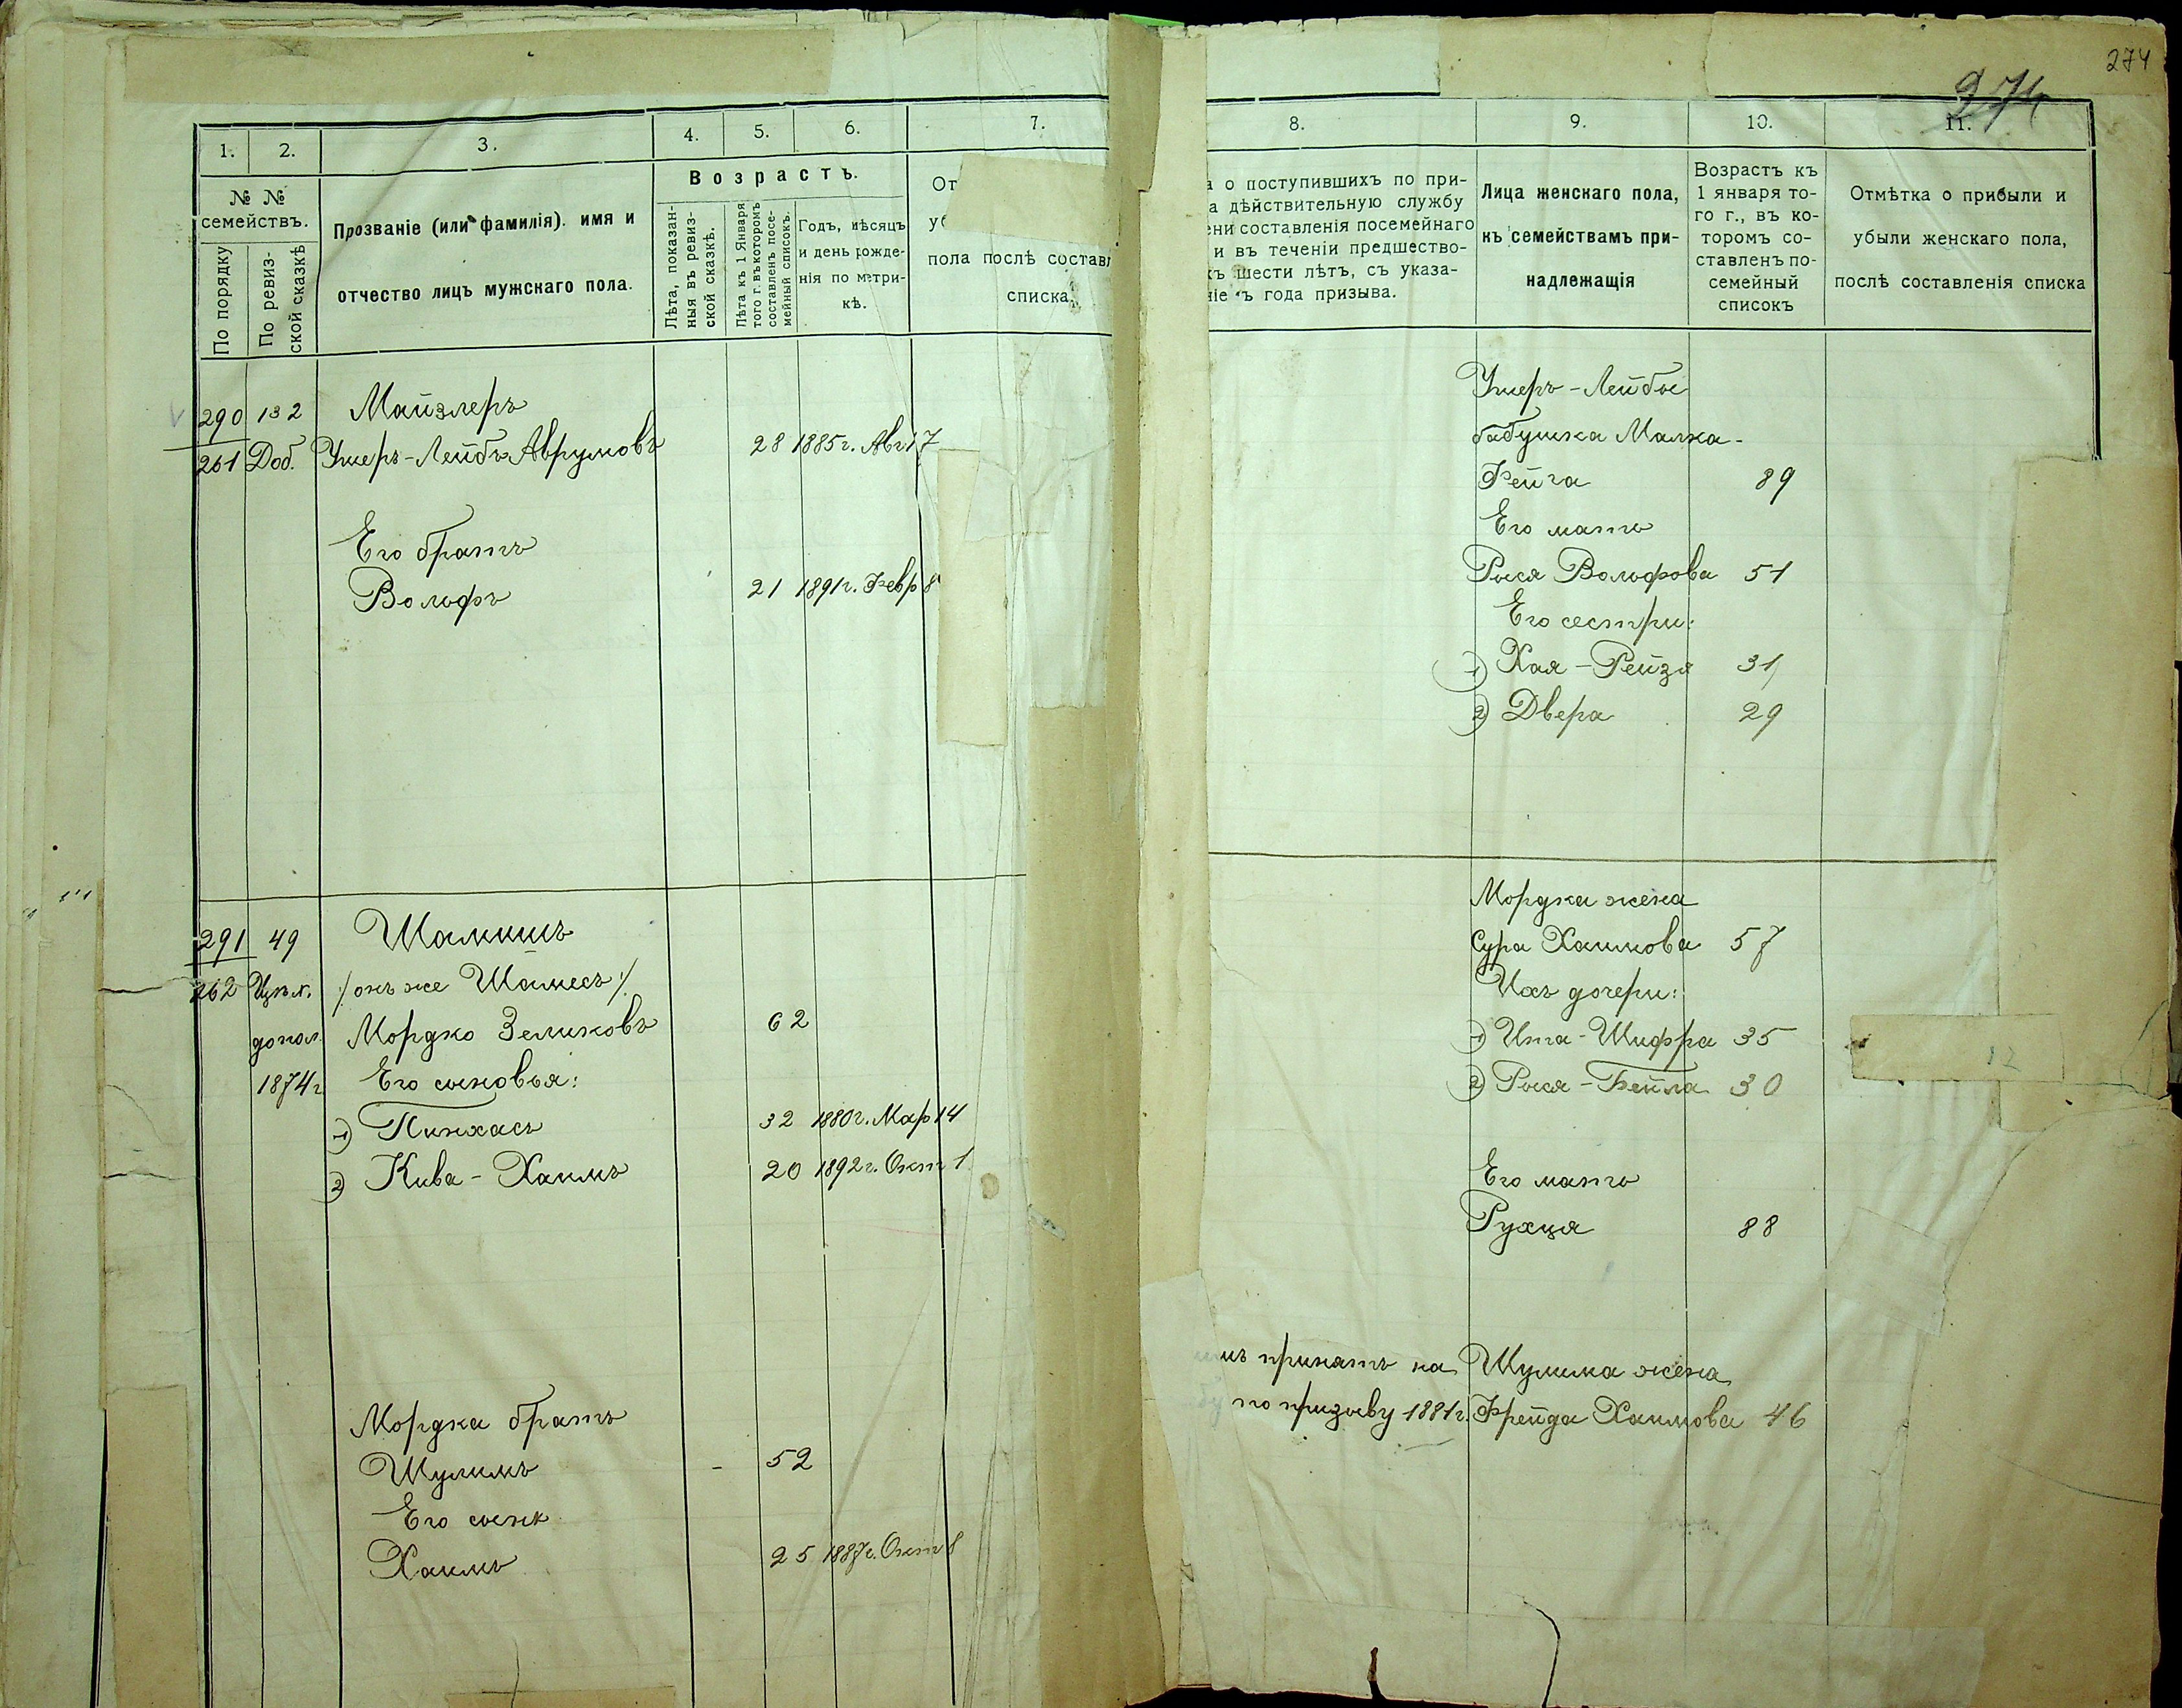 274
274
1.
2.
3.
4.
5.
6.
7.
№ №
семействъ.
По порядку
По ревиз-
ской сказкѣ
Прозваніе (или фамилія). имя и
отчество лицъ мужскаго пола.
Возрастъ.
Лѣта, показан-
ныя въ ревиз-
ской сказкѣ.
Лѣта къ 1 Января
того г. въ которомъ
составленъ посе-
мейный списокъ.
Годъ, мѣсяцъ
и день рожде-
нія по метри-
кѣ.
От
уб
пола послѣ составл
списка.
290 132 Майзлеръ
261 Доб. Ушеръ-Лейбъ Аврумовъ 28 1885г. Авг 17
Его братъ
Вольфъ 21 1891г. Февр 8
291 49 Шамишъ
262 Цукл. /онъ же Шамесъ/
допол. Мордко Зеликовъ 62
1874г Его сыновья:
1) Пинхасъ 32 1880г. Мар 14
2) Кива-Хаимъ 20 1892г. Окт 1
Мордка братъ
Шулимъ - 52
Его сынъ
Хаимъ 25 1887г. Окт 8
8.
9.
10.
11.
а о поступившихъ по при-
а дѣйствительную службу
ени составленія посемейнаго
и въ теченіи предшество-
хъ шести лѣтъ, съ указа-
ніе ъ года призыва.
Лица женскаго пола,
къ семействамъ при-
надлежащія
Возрастъ къ
1 января то-
го г., въ ко-
торомъ со-
ставленъ по-
семейный
списокъ
Отмѣтка о прибыли и
убыли женскаго пола,
послѣ составленія списка
Ушеръ-Лейбы
бабушка Малка-
Фейга 89
Его мать
Рыся Вольфова 51
Его сестри:
1) Хая-Рейзя 31
2) Двера 29
Мордка жена
Сура Хаимова 57
Ихъ дочери:
1) Ита-Шифра 35
2) Рыся-Бейла 30
Его мать
Рухця 88
мъ принятъ на Шулима жена
по призыву 1881г. Фрейда Хаимова 46
12